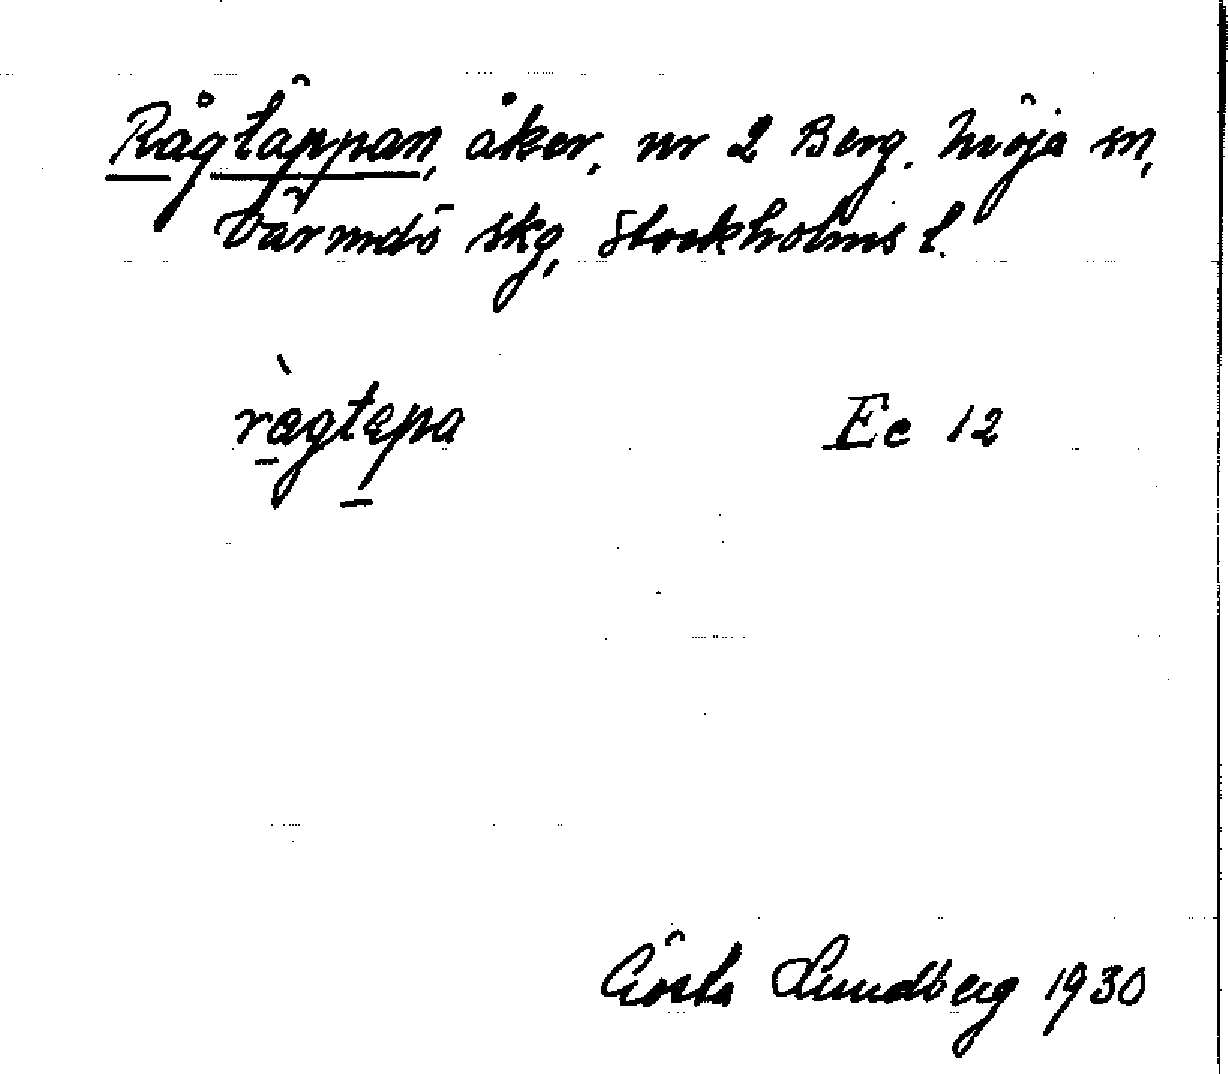 Rågtäppan, åker, nr 2 Berg. Möja sn,
Värmdö skg, Stockholms l.
rå̀gtepa Ec 12
Gösta Lundberg 1930